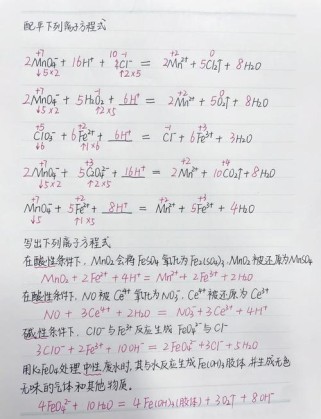 配平下列离子方程式
+7 -1 +2 0
2MnO₄⁻ + 16H⁺ + 10Cl⁻ = 2Mn²⁺ + 5Cl₂↑ + 8H₂O
↓5×2 ↑2×5
+7 -1 +2 0
2MnO₄⁻ + 5H₂O₂ + 6H⁺ = 2Mn²⁺ + 5O₂↑ + 8H₂O
↓5×2 ↑2×5
+5 +2 -1 +3
ClO₃⁻ + 6Fe²⁺ + 6H⁺ = Cl⁻ + 6Fe³⁺ + 3H₂O
↓6 ↑1×6
+7 +3 +2 +4
2MnO₄⁻ + 5C₂O₄²⁻ + 16H⁺ = 2Mn²⁺ + 10CO₂↑ + 8H₂O
↓5×2 ↑2×5
+7 +2 +2 +3
MnO₄⁻ + 5Fe²⁺ + 8H⁺ = Mn²⁺ + 5Fe³⁺ + 4H₂O
↓5 ↑1×5
写出下列离子方程式
在酸性条件下, MnO₂会将FeSO₄氧化为Fe₂(SO₄)₃, MnO₂被还原为MnSO₄
MnO₂ + 2Fe²⁺ + 4H⁺ = Mn²⁺ + 2Fe³⁺ + 2H₂O
在酸性条件下, NO被Ce⁴⁺氧化为NO₃⁻, Ce⁴⁺被还原为Ce³⁺
NO + 3Ce⁴⁺ + 2H₂O = NO₃⁻ + 3Ce³⁺ + 4H⁺
碱性条件下, ClO⁻与Fe³⁺反应生成FeO₄²⁻与Cl⁻
3ClO⁻ + 2Fe³⁺ + 10OH⁻ = 2FeO₄²⁻ + 3Cl⁻ + 5H₂O
用K₂FeO₄处理中性废水时, 其与水反应生成Fe(OH)₃胶体, 并生成无色
无味的气体和其他物质。
4FeO₄²⁻ + 10H₂O = 4Fe(OH)₃(胶体) + 3O₂↑ + 8OH⁻